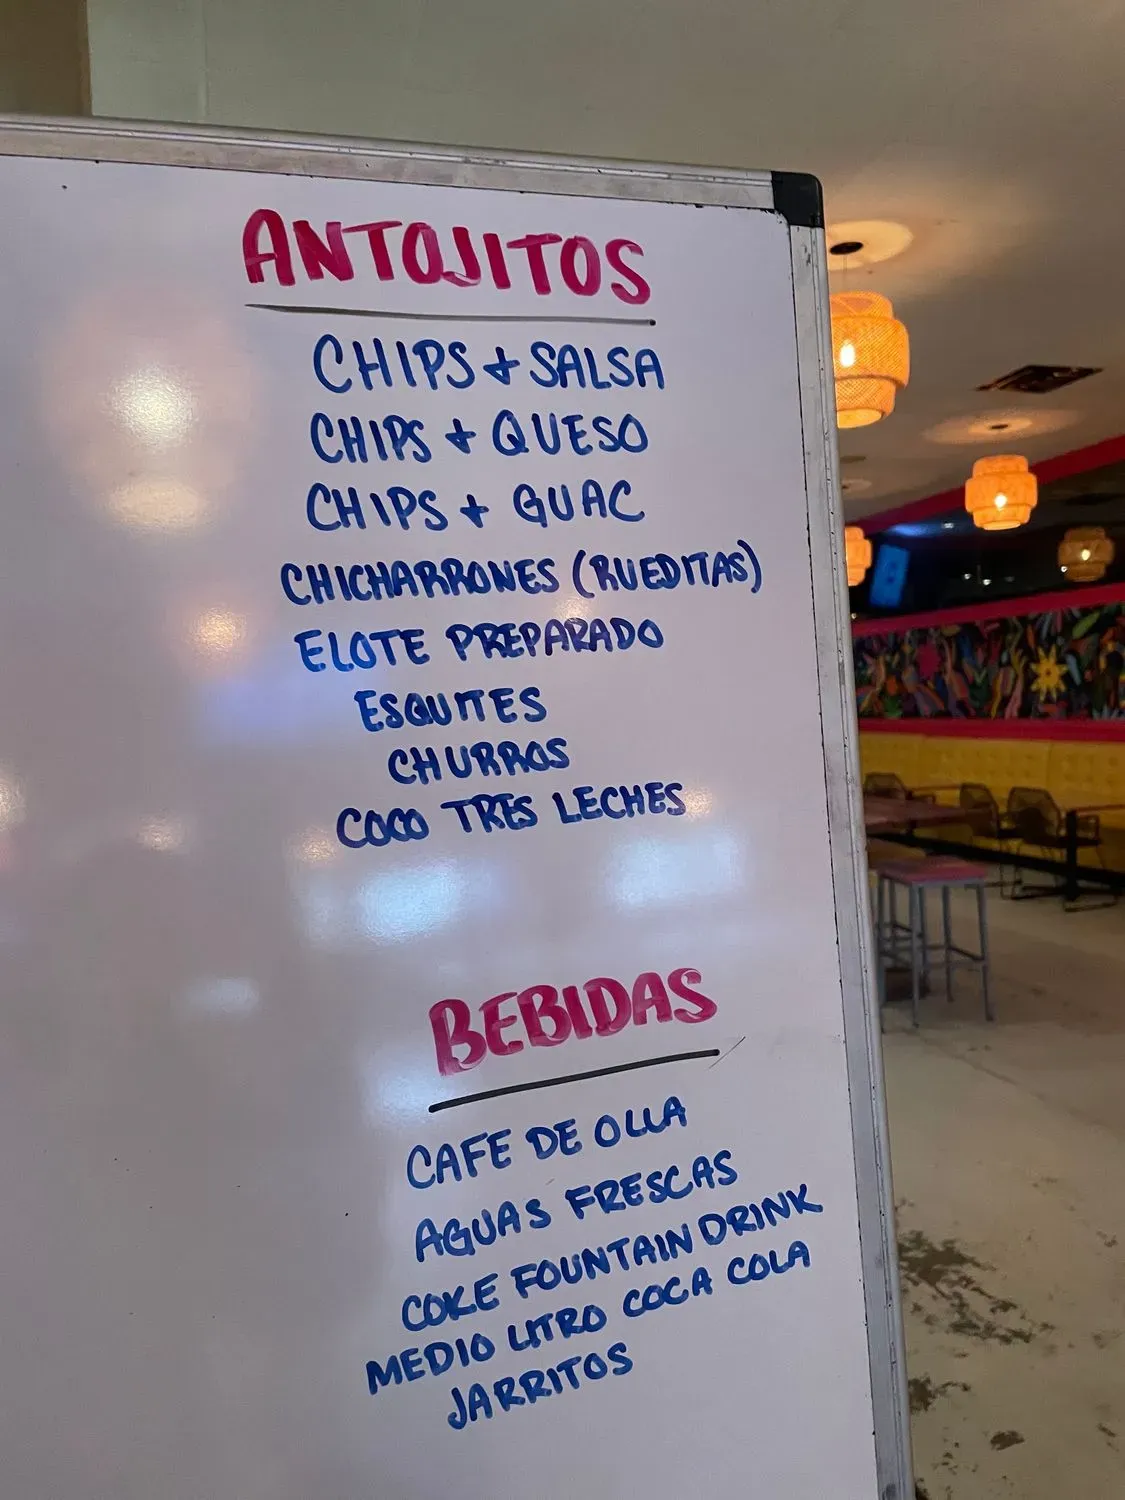 ANTOJITOS
CHIPS + SALSA
CHIPS + QUESO
CHIPS + GUAC
CHICHARRONES (RUEDITAS)
ELOTE PREPARADO
ESQUITES
CHURROS
COCO TRES LECHES
BEBIDAS
CAFE DE OLLA
AGUAS FRESCAS
COKE FOUNTAIN DRINK
MEDIO LITRO COCA COLA
JARRITOS